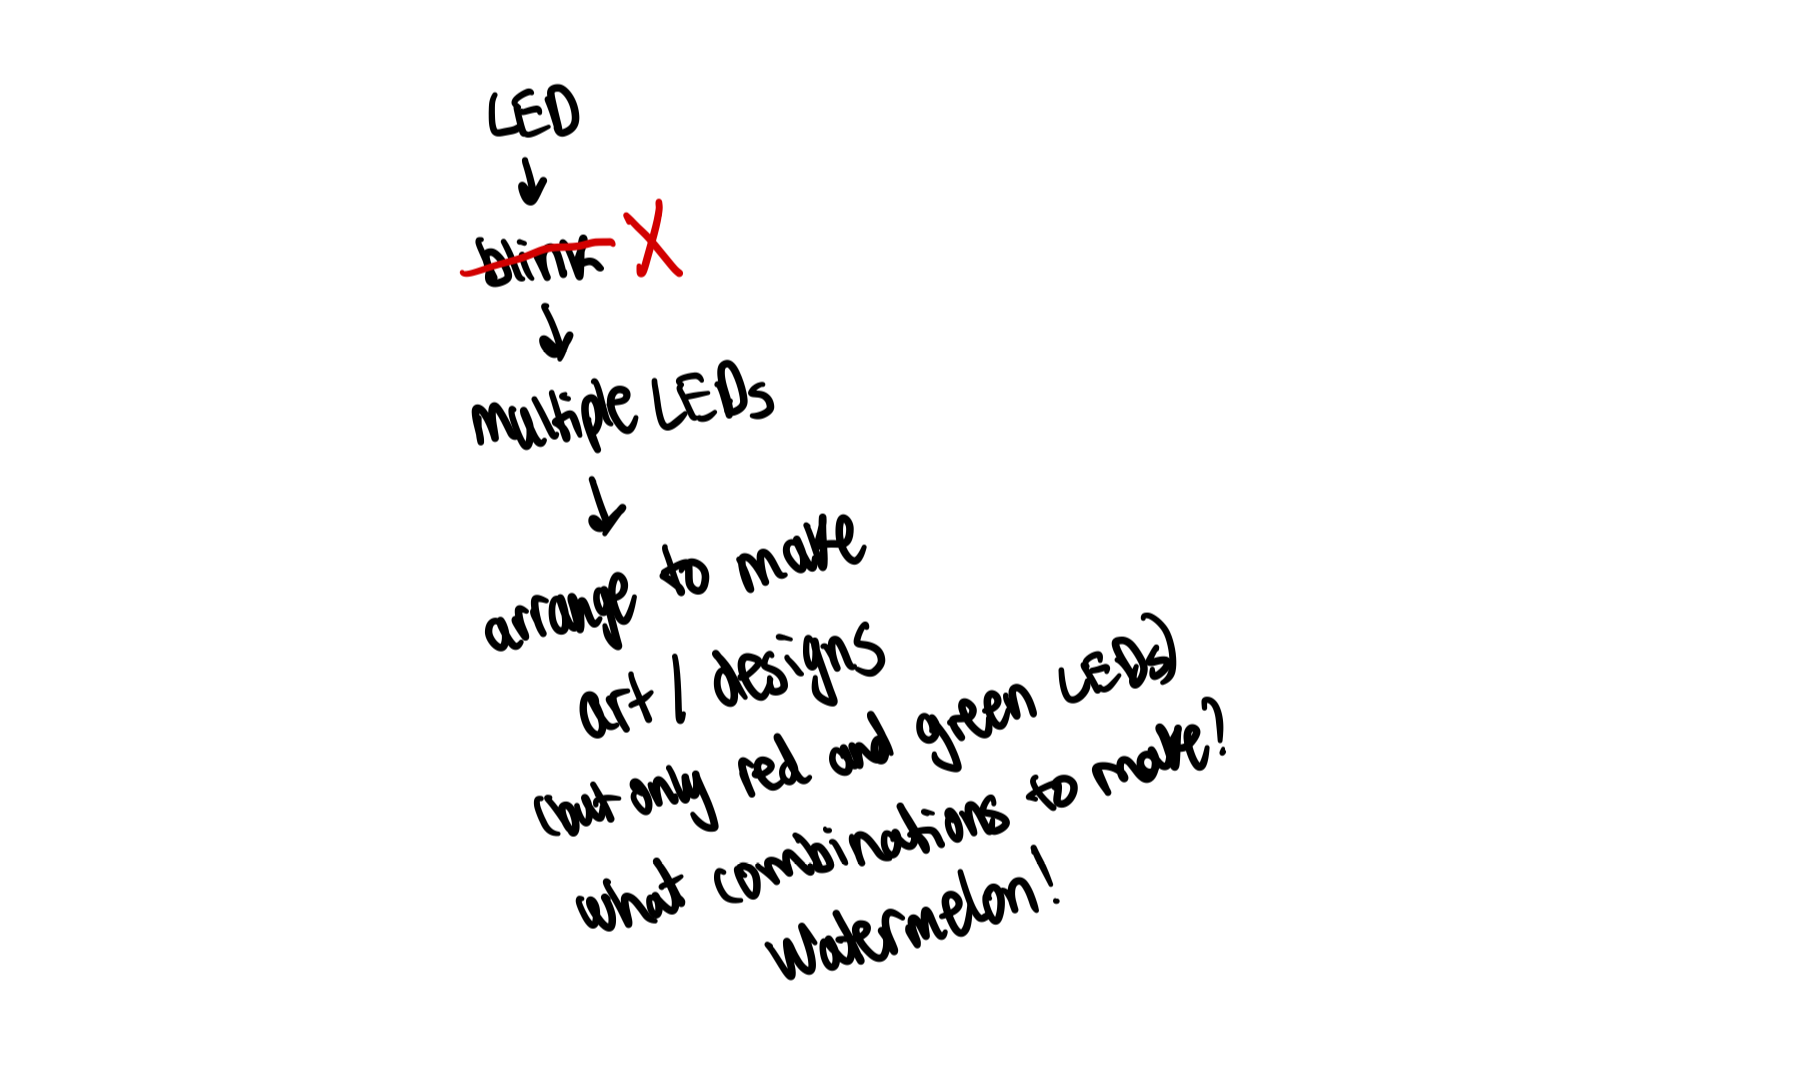 LED
↓
blink X
↓
multiple LEDs
↓
arrange to make
art / designs
(but only red and green LEDs)
what combinations to make?
Watermelon!